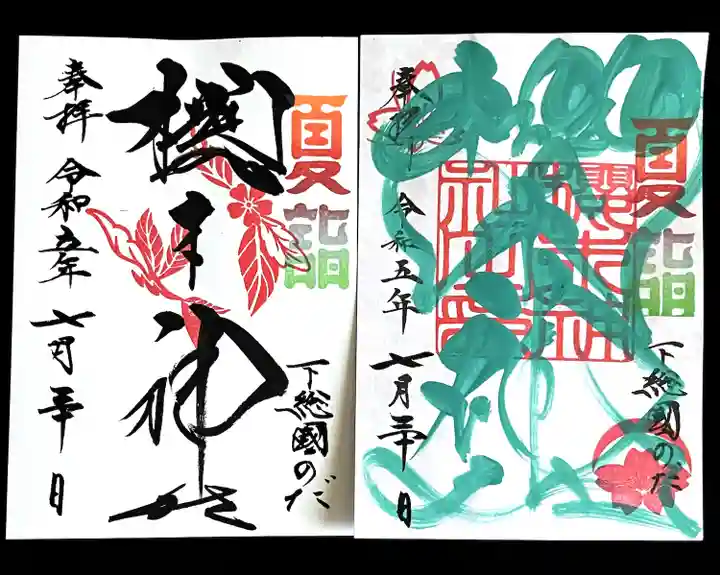 夏詣
下総國のだ
櫻木神社
奉拝 令和五年 七月三十日
夏詣
下総國のだ
奉拝 令和五年 七月三十日